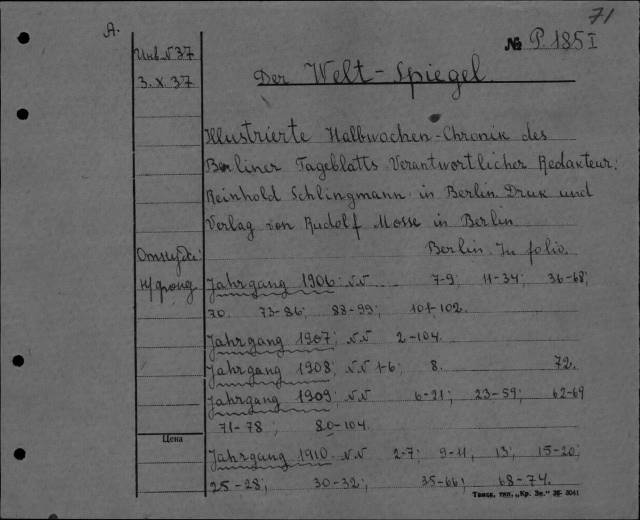 71
A.
№ P. 185 I
Инв. № 37
3. X. 37
Der Welt-Spiegel
Illustrierte Halbwochen-Chronik des
Berliner Tageblatts Verantwortlicher Redakteur:
Reinhold Schlingmann in Berlin Druk und
Verlag von Rudolf Mosse in Berlin
Berlin. In folio.
Откуда:
н/фонд
Jahrgang 1906: NN 7-9; 11-34; 36-68;
70. 73-86; 88-99; 101-102.
Jahrgang 1907; NN 2-104.
Jahrgang 1908; NN 1-6; 8. 72.
Jahrgang 1909; NN 6-21; 23-59; 62-69
71-78; 80-104.
Цена
Jahrgang 1910. NN 2-7; 9-11, 13; 15-20;
25-28; 30-32; 35-66; 68-74.
тип. „Кр. Зн."